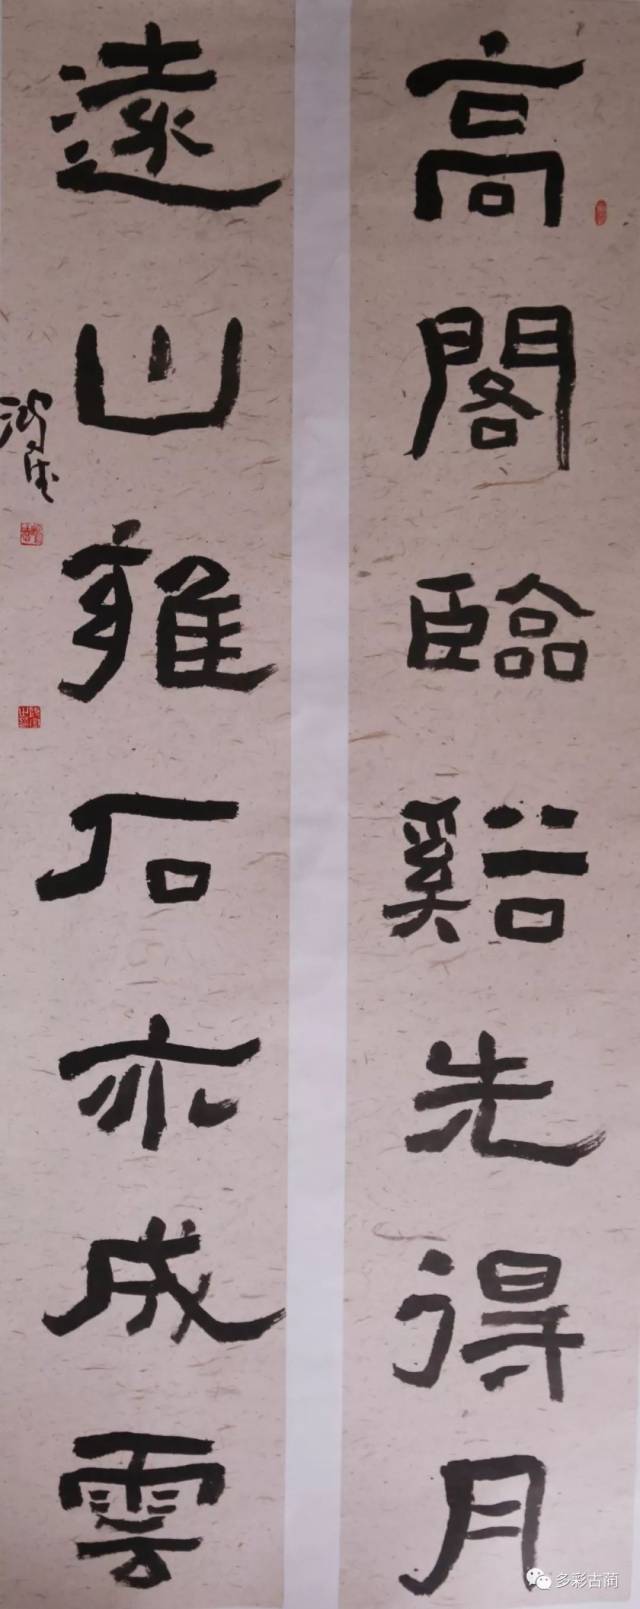 高閣臨谿先得月
遠山雍石亦成雲
多彩古蔺